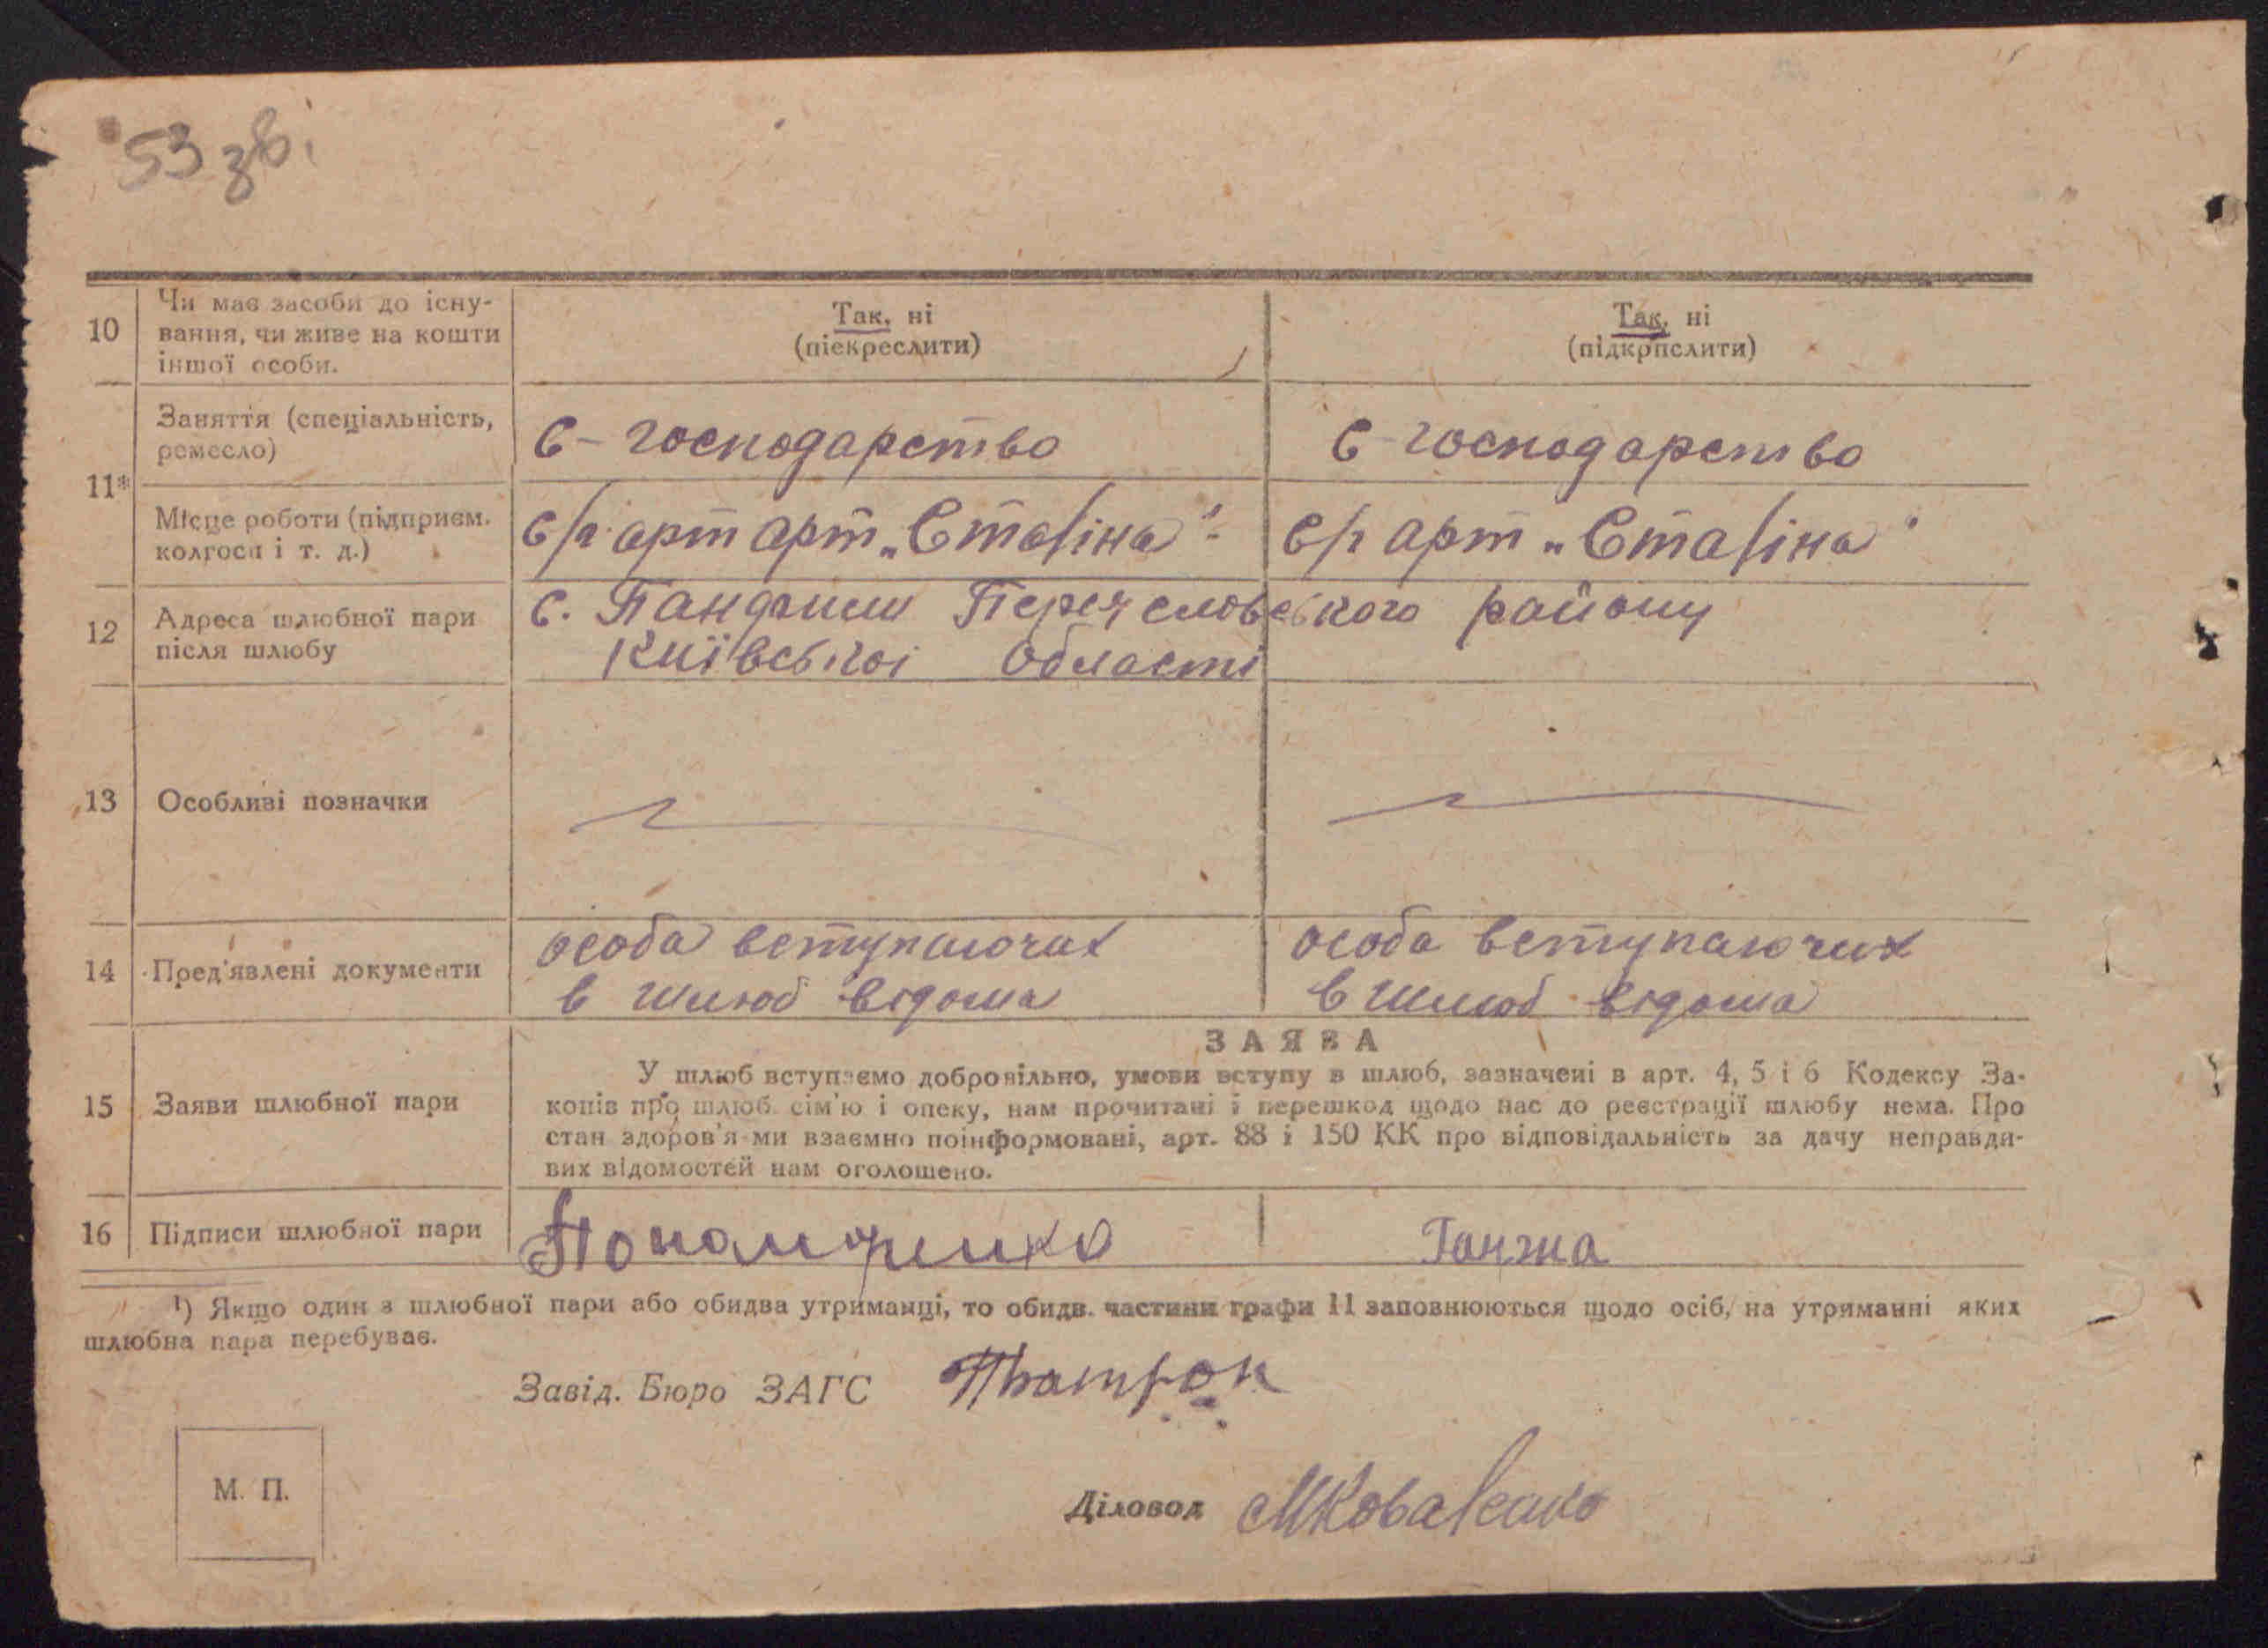 53 зв.
10
Чи має засоби до існу-
вання, чи живе на кошти
іншої особи.
Так, ні
(піекреслити)
Так, ні
(підкрпслити)
11*
Заняття (спеціальність,
ремесло)
С - господарство
С - господарство
Місце роботи (підприєм.
колгосп і т. д.)
с/г арт арт „Сталіна"
с/г арт „Сталіна"
12
Адреса шлюбної пари
після шлюбу
с. Пандиши Переяславського району
Київської Області
13
Особливі позначки
14
Пред'явлені документи
особа вступаючих
в шлюб відома
особа вступаючих
в шлюб відома
15
Заяви шлюбної пари
ЗАЯВА
У шлюб вступаємо добровільно, умови вступу в шлюб, зазначені в арт. 4, 5 і 6 Кодексу За-
конів про шлюб сім'ю і опеку, нам прочитані і перешкод щодо нас до реєстрації шлюбу нема. Про
стан здоров'я ми взаємно поінформовані, арт. 88 і 150 КК про відповідальність за дачу неправди-
вих відомостей нам оголошено.
16
Підписи шлюбної пари
Пономаренко
Ганжа
¹) Якщо один з шлюбної пари або обидва утриманці, то обидв. частини графи 11 заповнюються щодо осіб, на утриманні яких
шлюбна пара перебуває.
Завід. Бюро ЗАГС
М. П.
Діловод МКоваленко